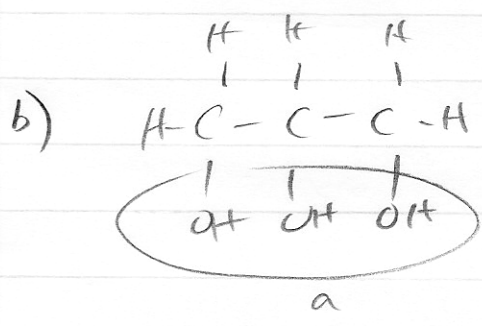 H H H
b) H-C-C-C-H
OH OH OH
a